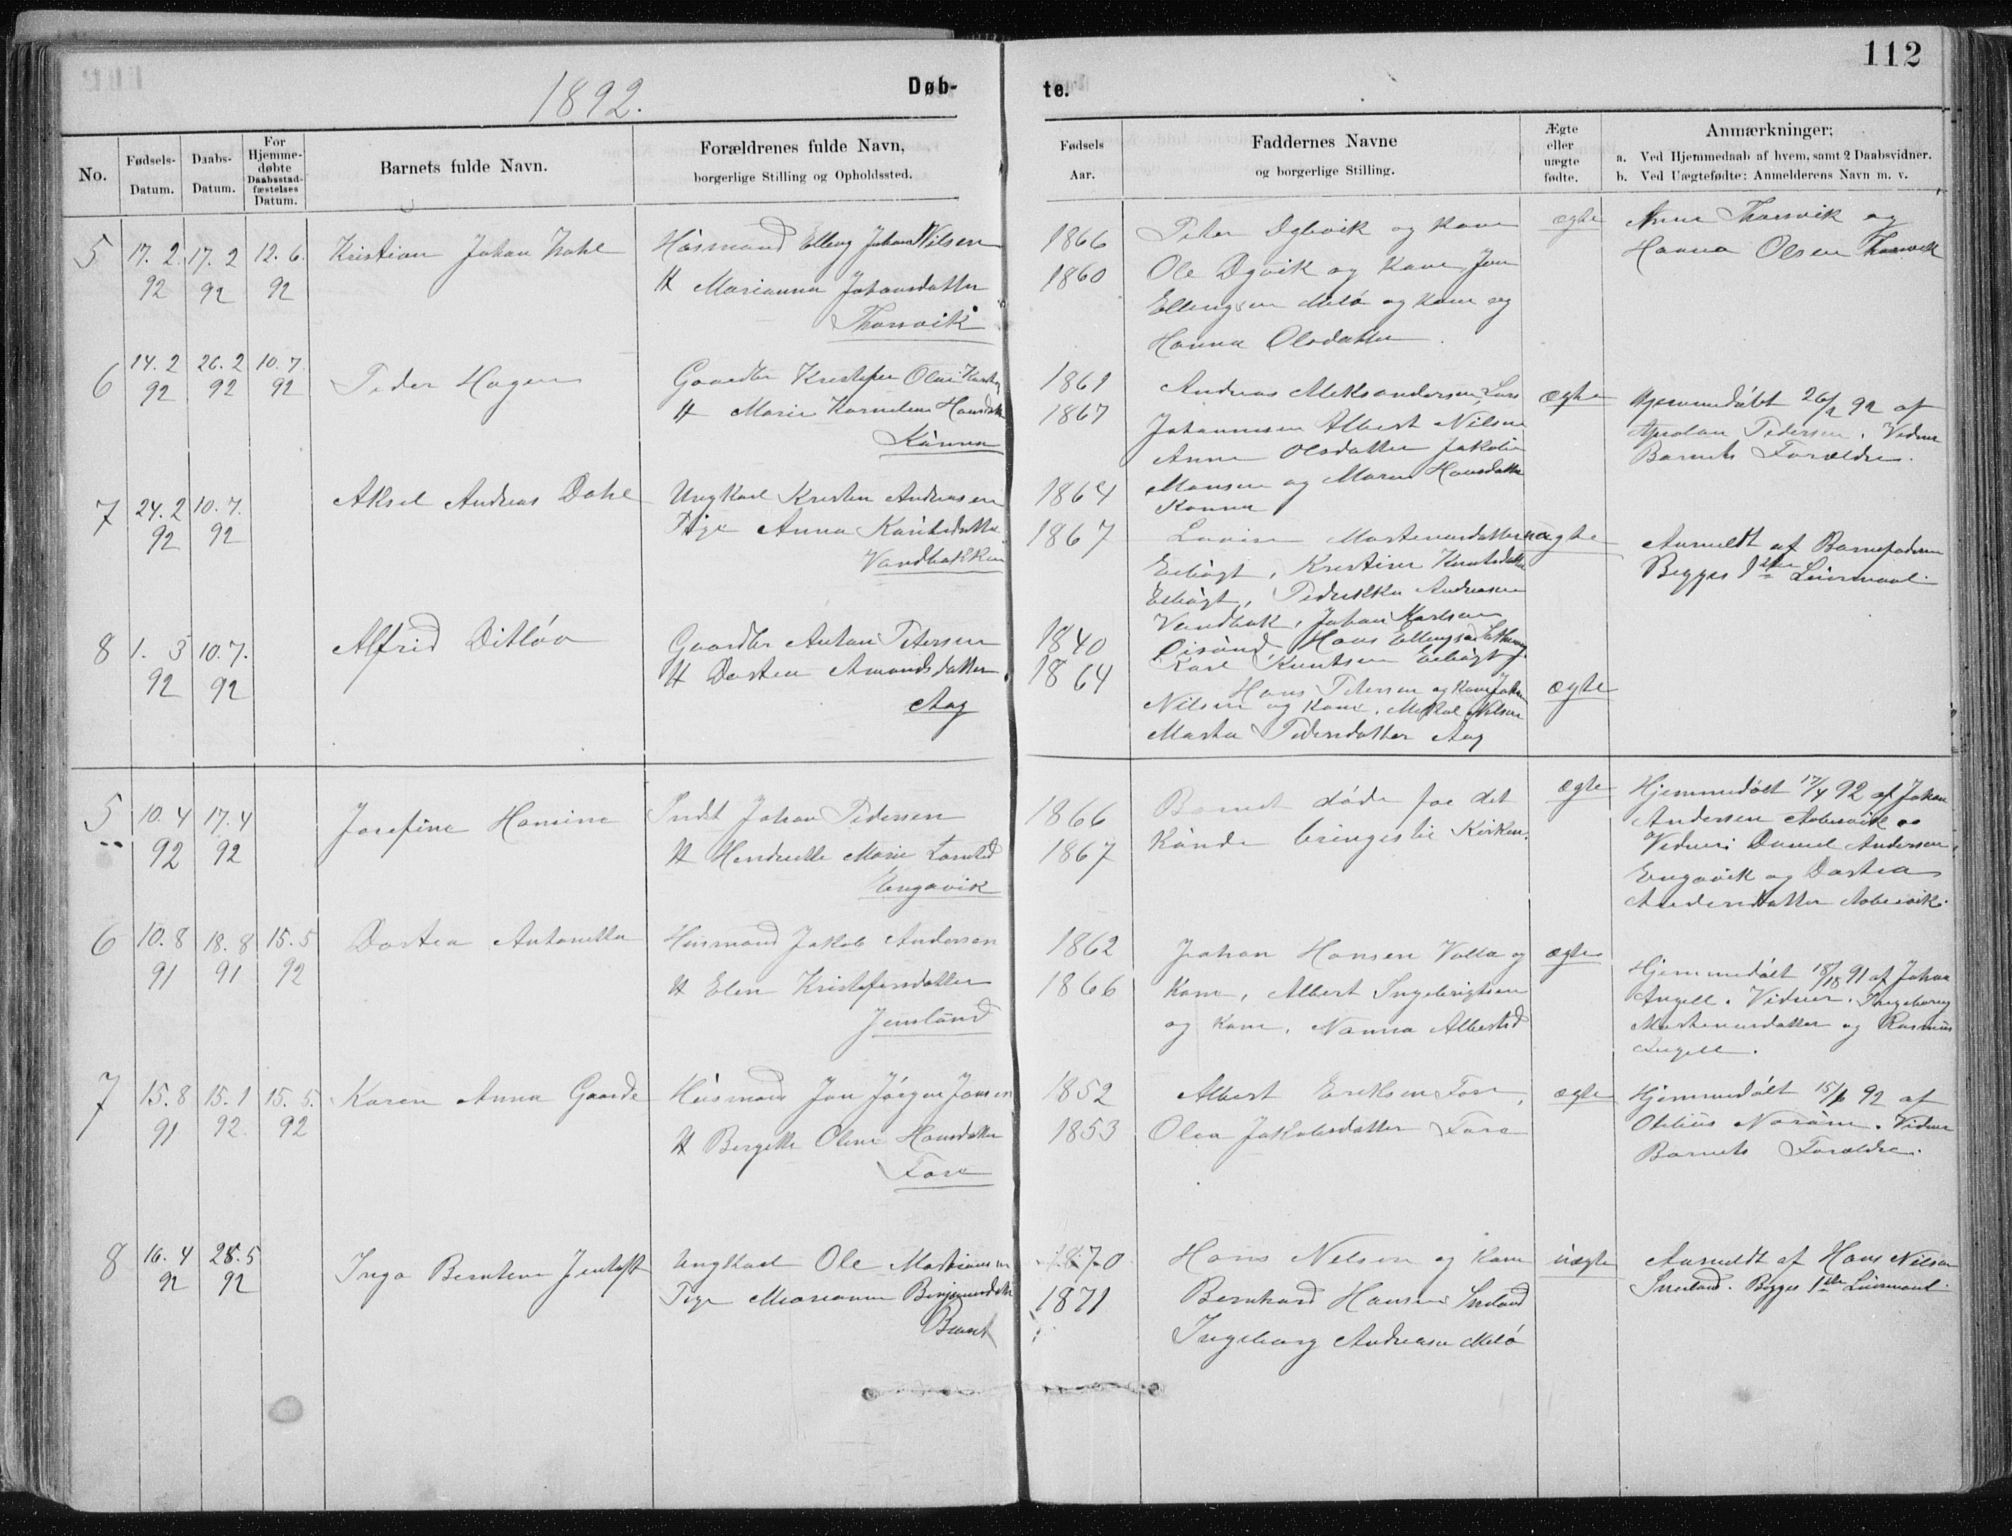 112
1892.
Døb-
te.
No.
Fødsels-
Datum.
Daabs-
Datum.
For
Hjemme-
døbte
Daabsstad-
fæstelses
Datum.
Barnets fulde Navn.
Forældrenes fulde Navn,
borgerlige Stilling og Opholdssted.
Fødsels
Aar.
Faddernes Navne
og borgerlige Stilling.
Ægte
eller
uægte
fødte.
Anmærkninger;
a. Ved Hjemmedaab af hvem, samt 2 Daabsvidner.
b. Ved Uægtefødte: Anmelderens Navn m. v.
5
17. 2.
92
17. 2
92
12. 6.
92
Kristian Johan
Husmand Elling Johan Nilsen
H Marianna Johansdatter
Thorsvik
1866
1860
Peter og Kone
Ole og Kone, Jon
Ellingsen Melö og Kone og
Hanna Olsdatter.
ægte
Thorsvik og
Hanna Olsen Thorsvik
6
14. 2
92
26. 2
92
10. 7.
92
Peder Hagen
Gaardbr Kristofer Olai
H Marie Kornelia Hansdatter
Kunna
1861
1867
Andreas Aleksandersen, Lars
Johannesen Albert Nilsen
Anne Olsdatter Jakobine
Monsen og Maren Hansdatter
Kunna
ægte
Hjemmedöbt 26/2 92 af
Pedersen. Vidner
Barnets Forældre.
7
24. 2
92
10. 7.
92
Aksel Andreas Dahl
Ungkarl Kristen Andreasen
Pige Anna
Vandbakken
1864
1867
Mortensdatter
Kristine Knutsdatter
Pedrikka Andreasen
Vandbak, Johan Karlsen
Hans Ellingsen
Karl Knutsen
uægte
Anmeldt af Barnefaderen
Begges 1ste Leiermaal.
8
1. 3
92
10. 7.
92
Alfrid Ditløv
Gaardbr Anton Petersen
H Dortea Amandsdatter
Aag
1840
1864
Hans Petersen og Kone, Johan
Nilsen og Kone, Mikal Nilsen
Marta Pedersdatter Aag
ægte
5
10. 4
92
17. 4
92
Josefine Hansine
Indst Johan Pedersen
H Hendrikke Marie
Engavik
1866
1867
Barnet döde för det
Kunde bringes til Kirken.
ægte
Hjemmedöbt 17/4 92 af Johan
Andersen
Vidner: Daniel Andersen
Engavik og Dortea
Andersdatter
6
10. 8
91
18. 8
91
15. 5
92
Dortea Antonetta
Husmand Jakob Andersen
H Elen Kristofersdatter
1862
1866
Johan Hansen Valla og
Kone, Albert Ingebrigtsen
og Kone, Nanna Albertsd
ægte
Hjemmedöbt 18/8 91 af Johan
Angell. Vidner. Ingeborg
Mortensdatter og Rasmus
Angell.
7
15. 8
91
15. 1
92
15. 5.
92
Karen Anna Gaarde
Husmand Jon Jörgen Jonsen
H Bergitte Oline Hansdatter
Fore
1852
1853
Albert Eriksen Fore,
Olea Jakobsdatter Fore
ægte
Hjemmedöbt 15/1 92 af
Vidner
Barnets Forældre.
8
16. 4
92
28. 5
92
Inga Berntine Jentoft
Ungkarl Ole Mathiassen
Pige Marianne Benjaminsdatter
1870
1871
Hans Nilsen og Kone
Bernhard Hansen
Ingeborg Andreasen Melö
uægte
Anmeldt af Hans Nilsen
Begges 1ste Leiermaal.